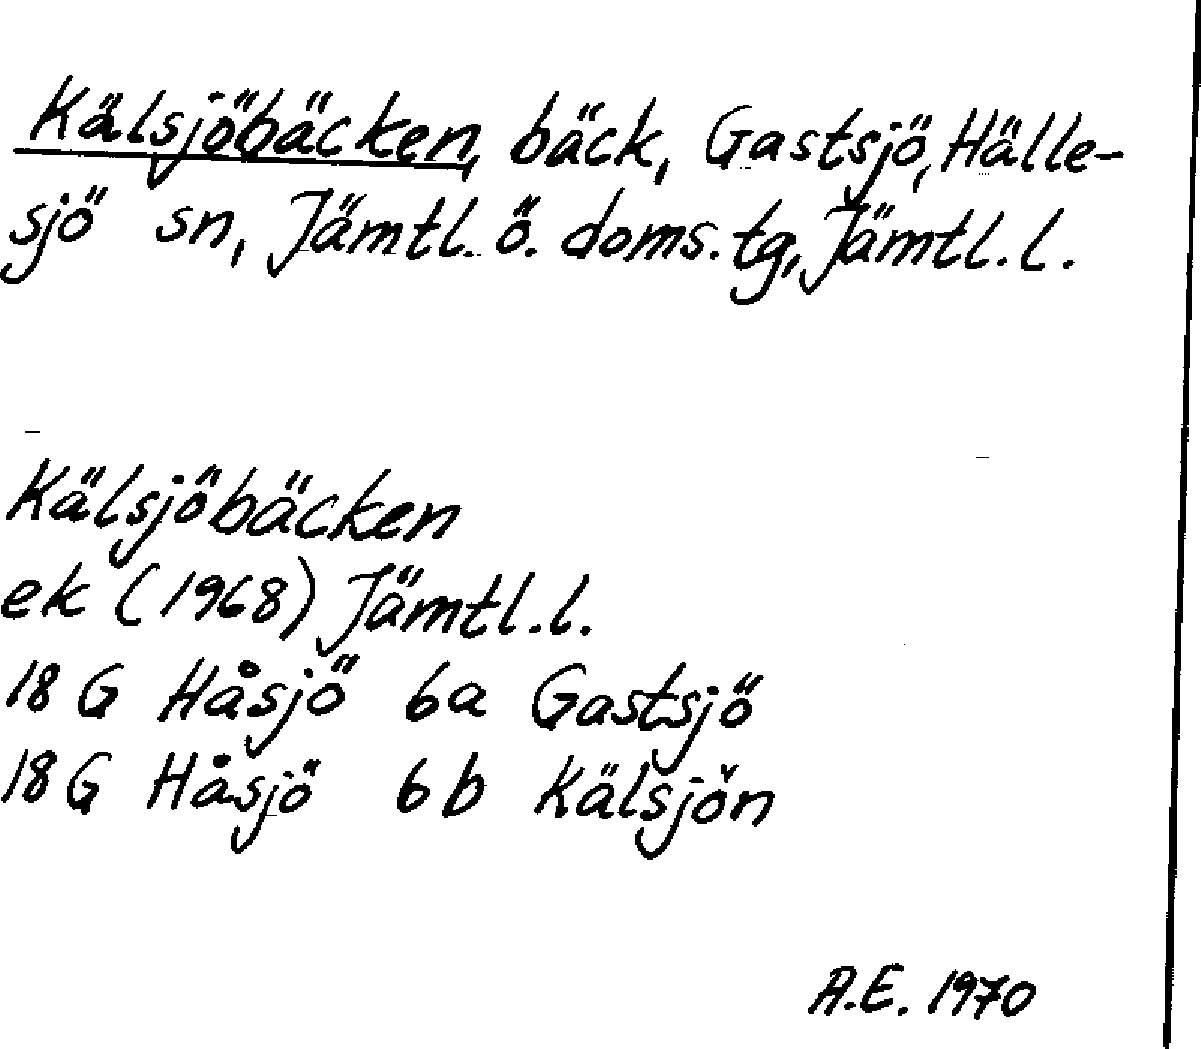 Kälsjöbäcken, bäck, Gastsjö, Hälle-
sjö sn, Jämtl. ö. doms. tg, Jämtl. l.
Kälsjöbäcken
ek (1968) Jämtl. l.
18 G Håsjö 6a Gastsjö
18 G Håsjö 6b Kälsjön
A.E. 1970